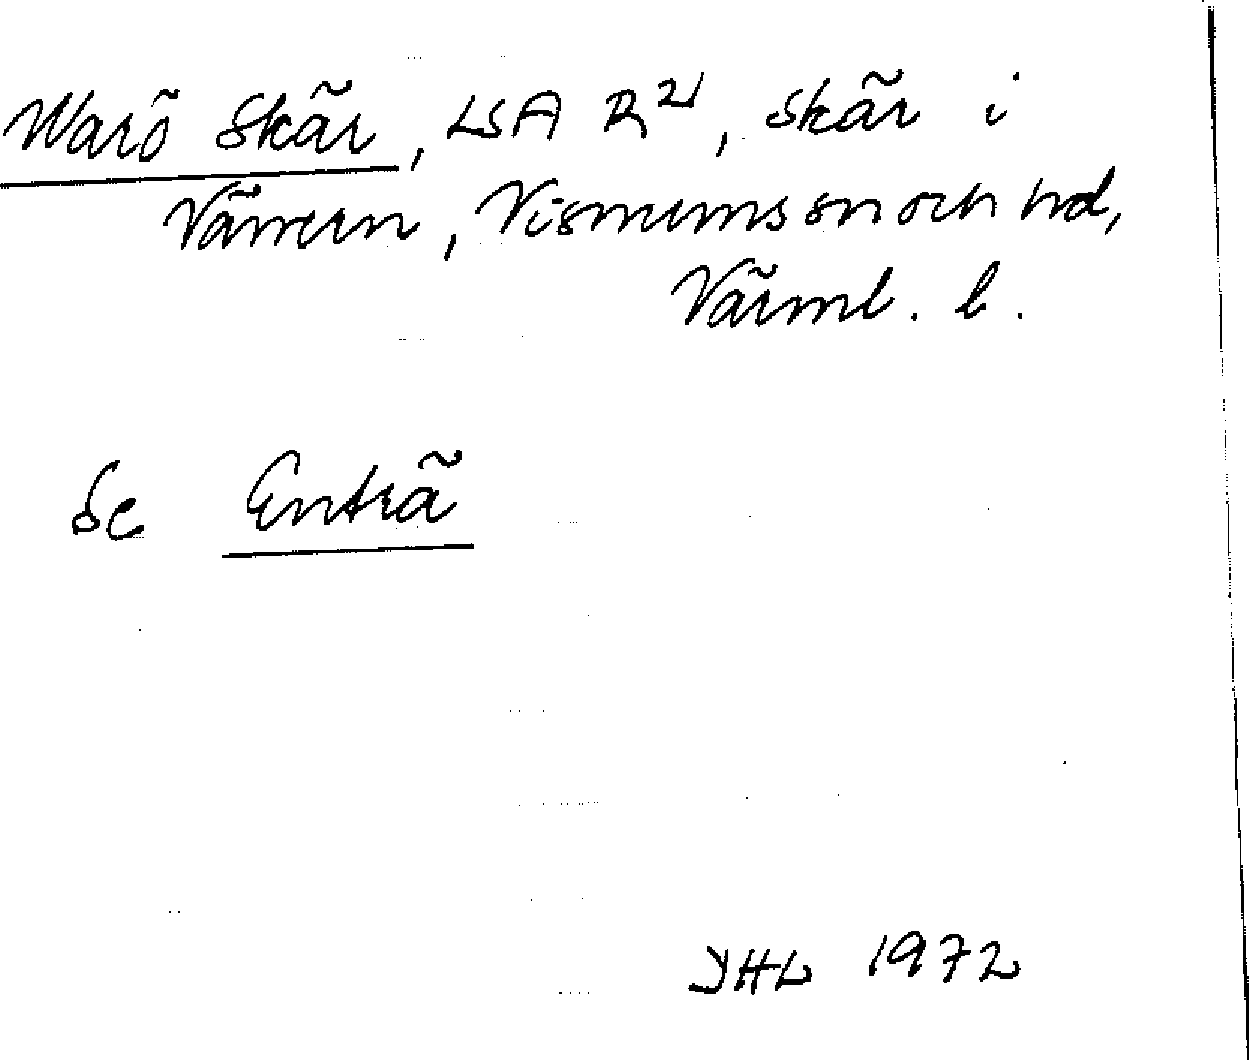 Warö Skär, LSA R21, skär i
Vänern, Visnums sn och hd,
Värml. l.
Se Enträ
YHL 1972